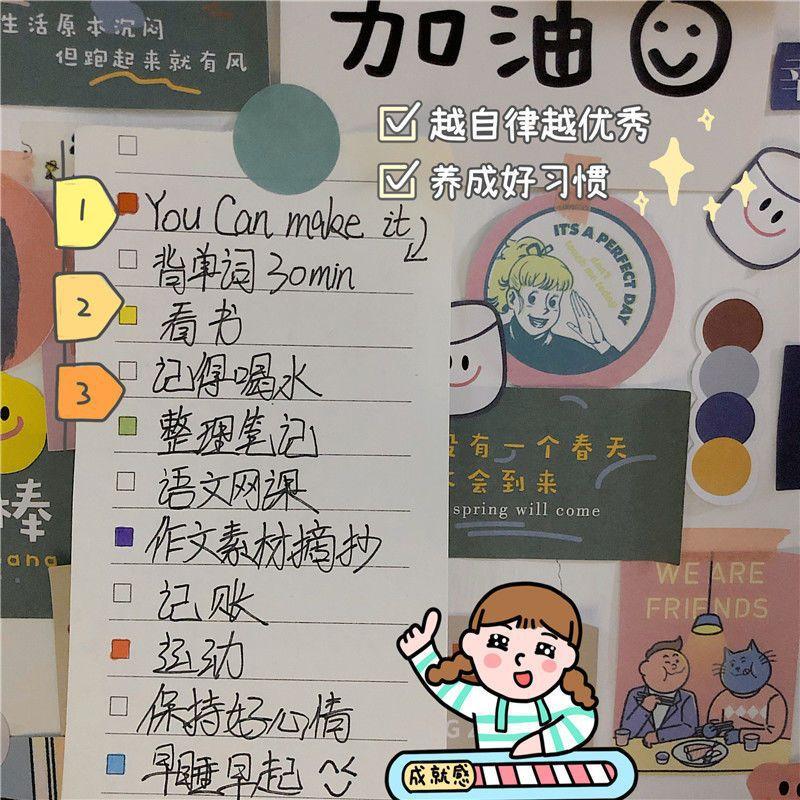 生活原本沉闷
但跑起来就有风
加油
越自律越优秀
养成好习惯
1
You Can make it
背单词 30min
2
看书
3
记得喝水
整理笔记
语文网课
作文素材摘抄
记账
运动
保持好心情
早睡早起
ITS A PERFECT DAY
没有一个春天
不会到来
spring will come
棒
ang
WE ARE
FRIENDS
成就感